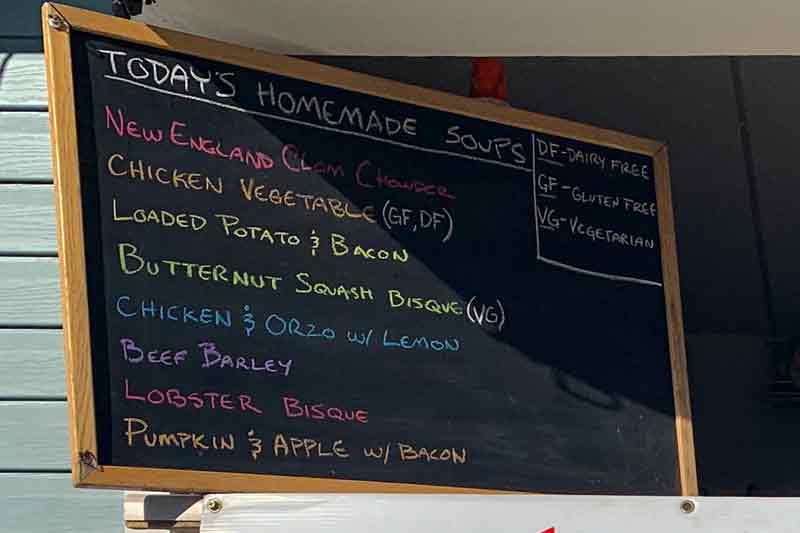 TODAY'S HOMEMADE SOUPS
DF-DAIRY FREE
GF-GLUTEN FREE
VG-VEGETARIAN
NEW ENGLAND CLAM CHOWDER
CHICKEN VEGETABLE (GF, DF)
LOADED POTATO & BACON
BUTTERNUT SQUASH BISQUE (VG)
CHICKEN & ORZO W/ LEMON
BEEF BARLEY
LOBSTER BISQUE
PUMPKIN & APPLE W/ BACON